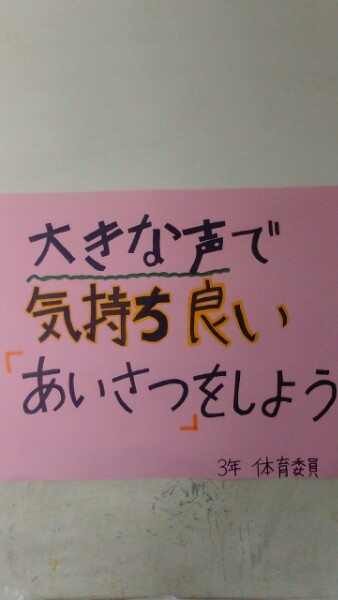 大きな声で
気持ち良い
「あいさつ」をしよう
3年 体育委員